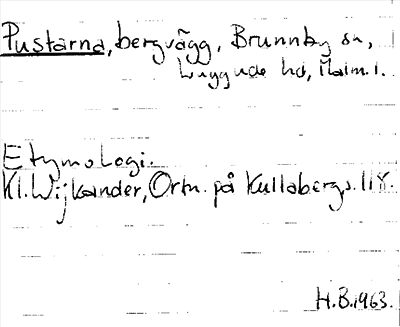 Pustarna, bergvägg, Brunnby sn,
Luggude hd, Malm. l.
Etymologi.
Kl. Wijkander, Ortn. på Kullaberg s. 118.
H.B. 1963.